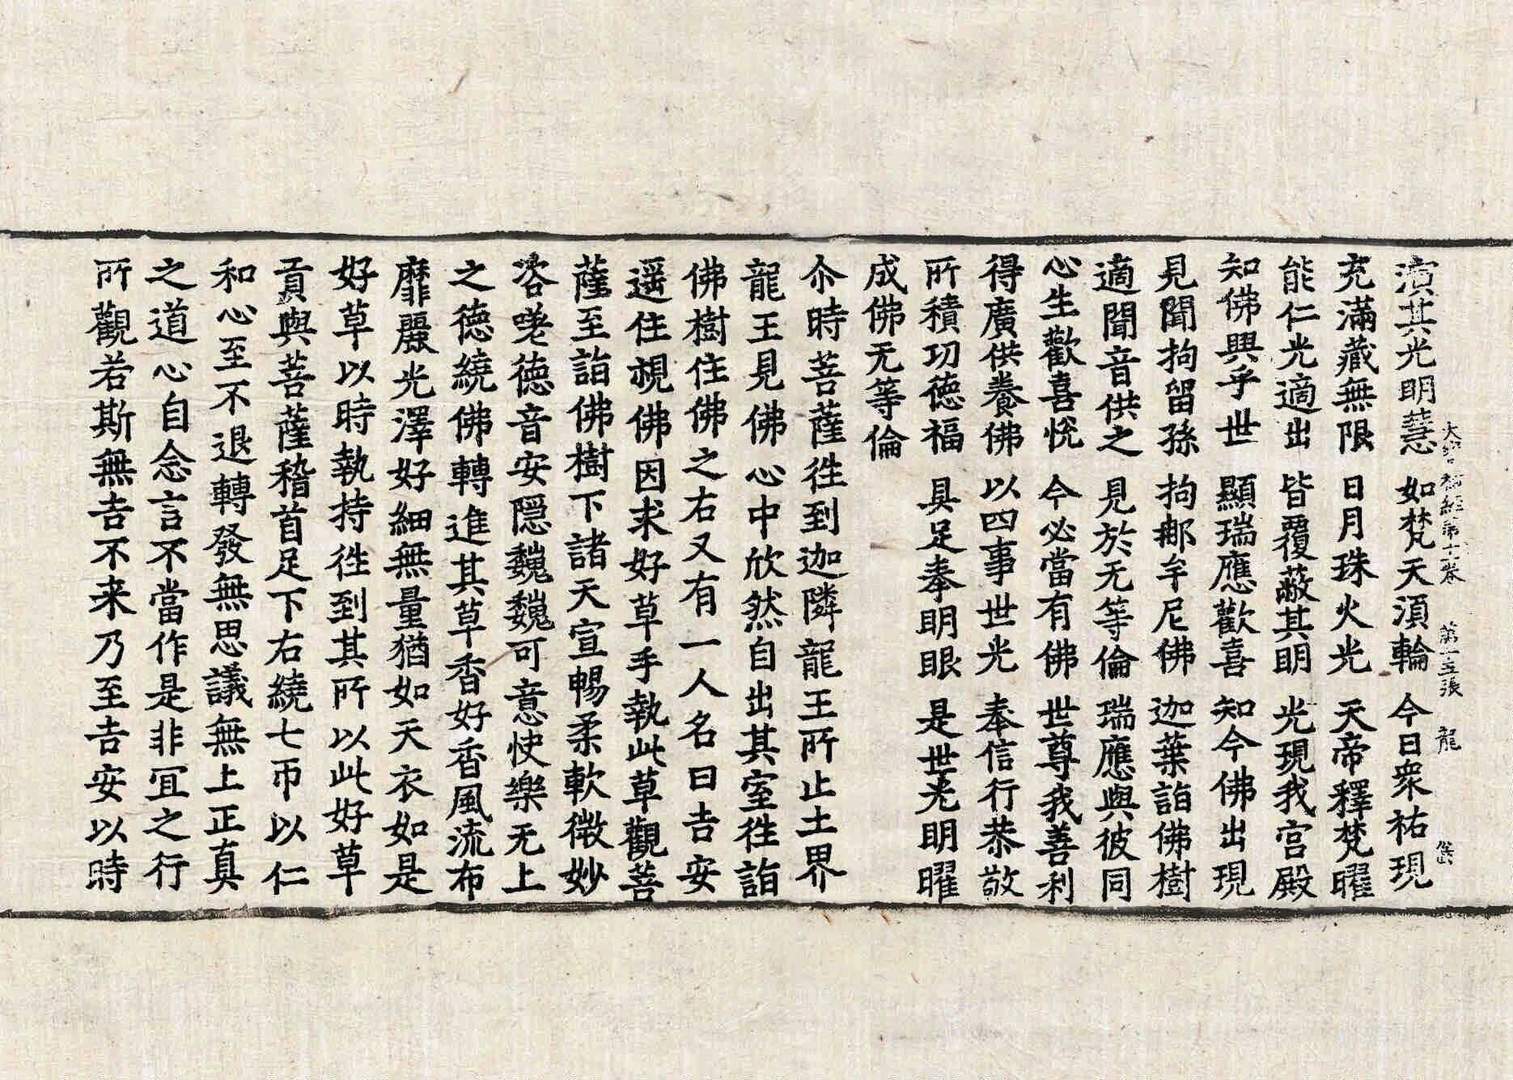 演其光明慧 如梵天湏輪 今日衆祐現
大 經第十卷 第 張 龍
充滿藏無限 日月珠火光 天帝釋梵曜
能仁光適出 皆覆蔽其明 光現我宮殿
知佛興乎世 顯瑞應歡喜 知今佛出現
見聞拘留孫 拘郍牟尼佛 迦葉詣佛樹
適聞音供之 見於无等倫 瑞應與彼同
心生歡喜悅 今必當有佛 世尊我善利
得廣供養佛 以四事世光 奉信行恭敬
所積功德福 具足奉明眼 是世光明曜
成佛无等倫
尒時菩薩徃到迦隣龍王所止土界
龍王見佛心中欣然自出其室徃詣
佛樹住佛之右又有一人名曰吉安
遥住視佛因求好草手執此草觀菩
薩至詣佛樹下諸天宣暢柔軟微妙
咨嗟德音安隱魏魏可意快樂无上
之德繞佛轉進其草香好香風流布
靡麗光澤好細無量猶如天衣如是
好草以時執持徃到其所以此好草
貢與菩薩稽首足下右繞七帀以仁
和心至不退轉發無思議無上正真
之道心自念言不當作是非冝之行
所觀若斯無吉不来乃至吉安以時